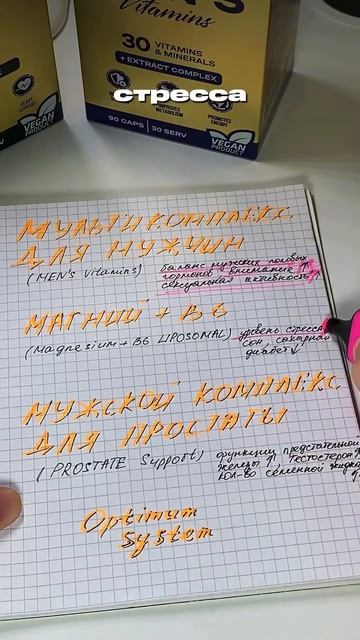 N'S
Vitamins
30 VITAMINS & MINERALS
+ EXTRACT COMPLEX
IMPROVES METABOLISM
PROMOTES ENERGY
90 CAPS | 30 SERV
VEGAN PRODUCT
VEGAN PRODUCT
стресса
МУЛЬТИКОМПЛЕКС
ДЛЯ МУЖЧИН
(MEN's Vitamins)
баланс мужских половых
гормонов внимание ↑
сексуальная активность ↑
МАГНИЙ + B6
(Magnesium + B6 LIPOSOMAL)
уровень стресса
сон, сахарный
диабет ↓
МУЖСКОЙ КОМПЛЕКС
ДЛЯ ПРОСТАТЫ
(PROSTATE Support)
функции предстательной
железы ↑, тестостерон ↑
кол-во семенной жидко
Optimum
System